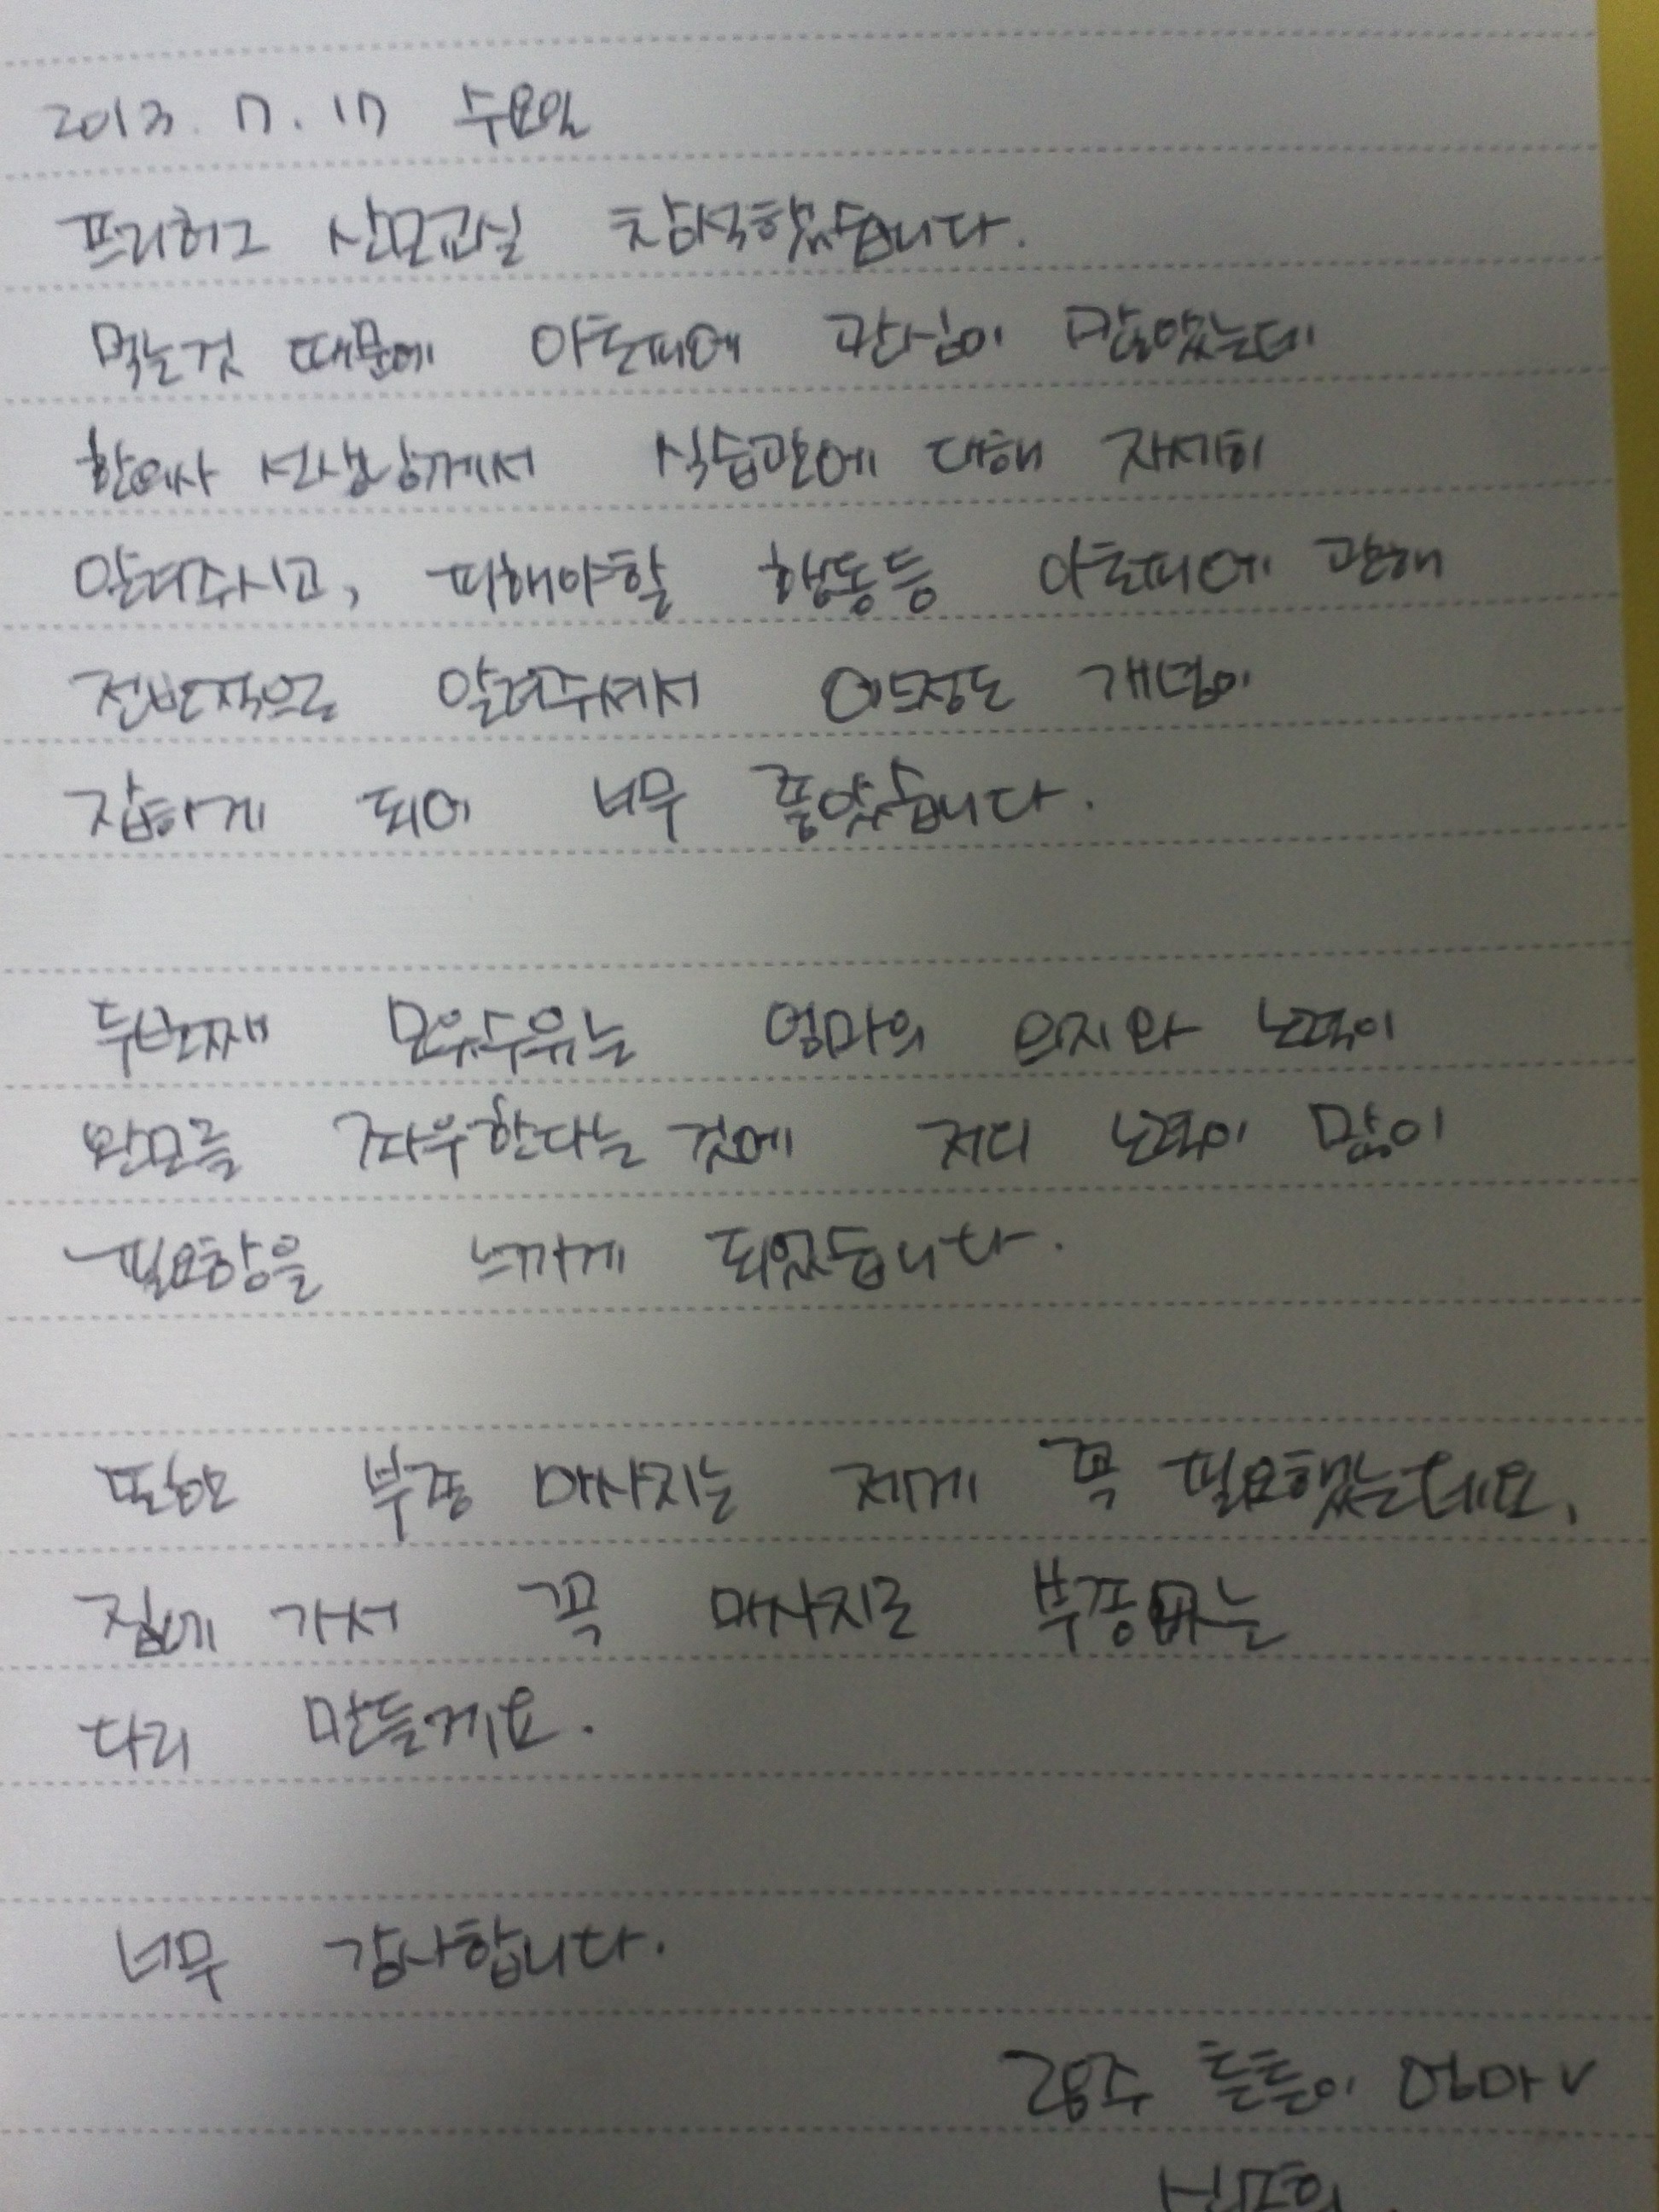 2013. 7. 17 수요일
프리허그 산모교실 참석했습니다.
먹는것 때문에 아토피에 관심이 많았는데
한의사 선생님께서 식습관에 대해 자세히
알려주시고, 피해야할 행동등 아토피에 관해
전반적으로 알려주셔서 어느정도 개념이
잡히게 되어 너무 좋았습니다.
두번째 모유수유는 엄마의 의지와 노력이
완모를 좌우한다는 것에 저의 노력이 많이
필요함을 느끼게 되었습니다.
또한 부종 마사지는 저에게 꼭 필요했는데요,
집에 가서 꼭 마사지로 부종없는
다리 만들게요.
너무 감사합니다.
튼튼이 엄마